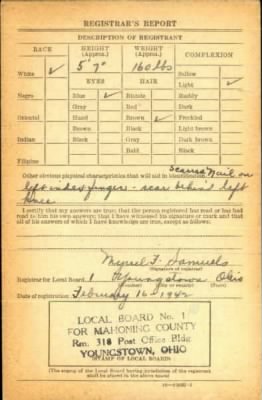 REGISTRAR'S REPORT
DESCRIPTION OF REGISTRANT
RACE HEIGHT (Approx.) WEIGHT (Approx.) COMPLEXION
5' 7" 160 lbs
White ✓ Sallow
EYES HAIR Light ✓
Negro Blue ✓ Blonde Ruddy
Gray Red Dark
Oriental Hazel Brown ✓ Freckled
Brown Black Light brown
Indian Black Gray Dark brown
Bald Black
Filipino
Other obvious physical characteristics that will aid in identification Scarred Nail on
left index finger - scar behind left
knee
I certify that my answers are true; that the person registered has read or has had
read to him his own answers; that I have witnessed his signature or mark and that
all of his answers of which I have knowledge are true, except as follows:
F. Samuels
(Signature of registrar)
Registrar for Local Board 1 Youngstown Ohio
Date of registration February 16 - 1942
LOCAL BOARD No. 1
FOR MAHONING COUNTY
Rm. 318 Post Office Bldg
YOUNGSTOWN, OHIO
(STAMP OF LOCAL BOARD)
(The stamp of the Local Board having jurisdiction of the registrant
shall be placed in the above space.)